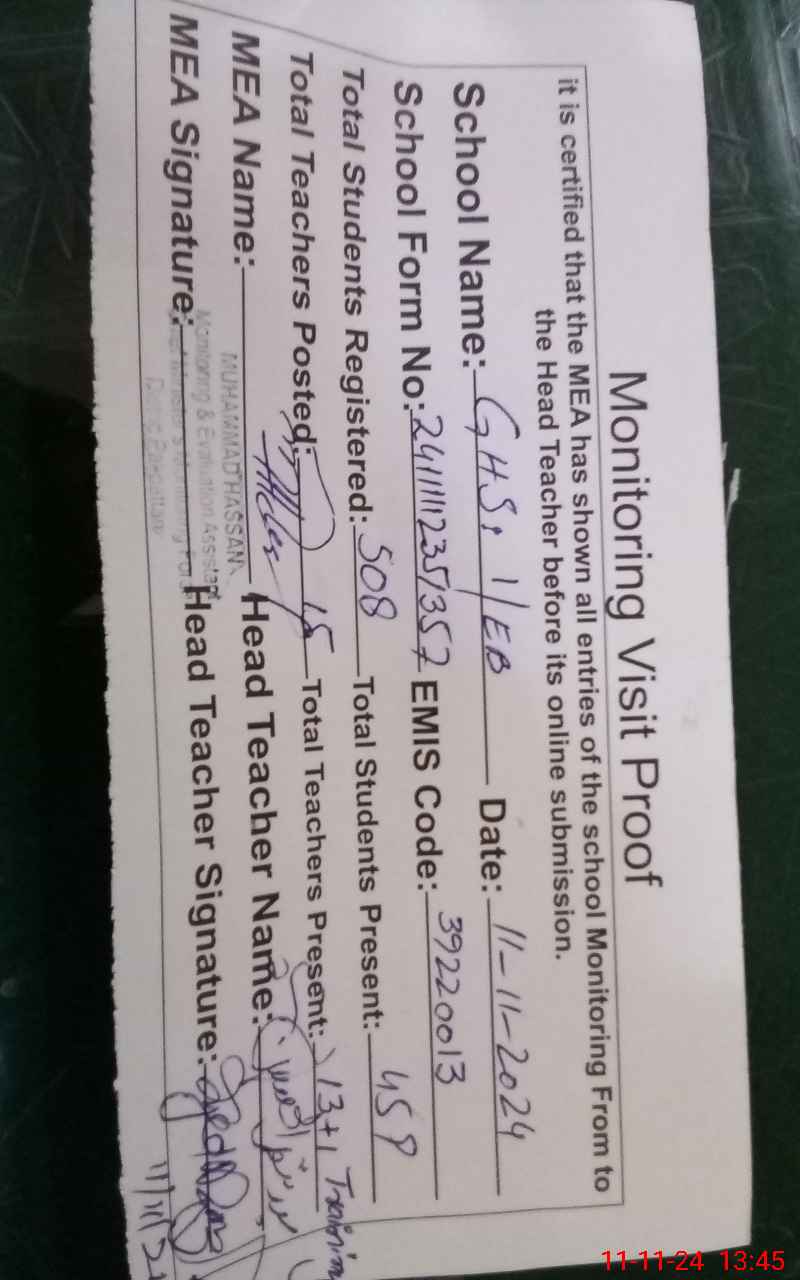 Monitoring Visit Proof
it is certified that the MEA has shown all entries of the school Monitoring From to
the Head Teacher before its online submission.
School Name: G H S, 1/EB Date: 11-11-2024
School Form No: EMIS Code: 39220013
Total Students Registered: 508 Total Students Present: 459
Total Teachers Posted: 15 Total Teachers Present: 13+1 Training
MEA Name: Head Teacher Name:
MUHAMMAD HASSAN
MEA Signature: Head Teacher Signature:
Monitoring & Evaluation Assistant
11-11-24 13:45